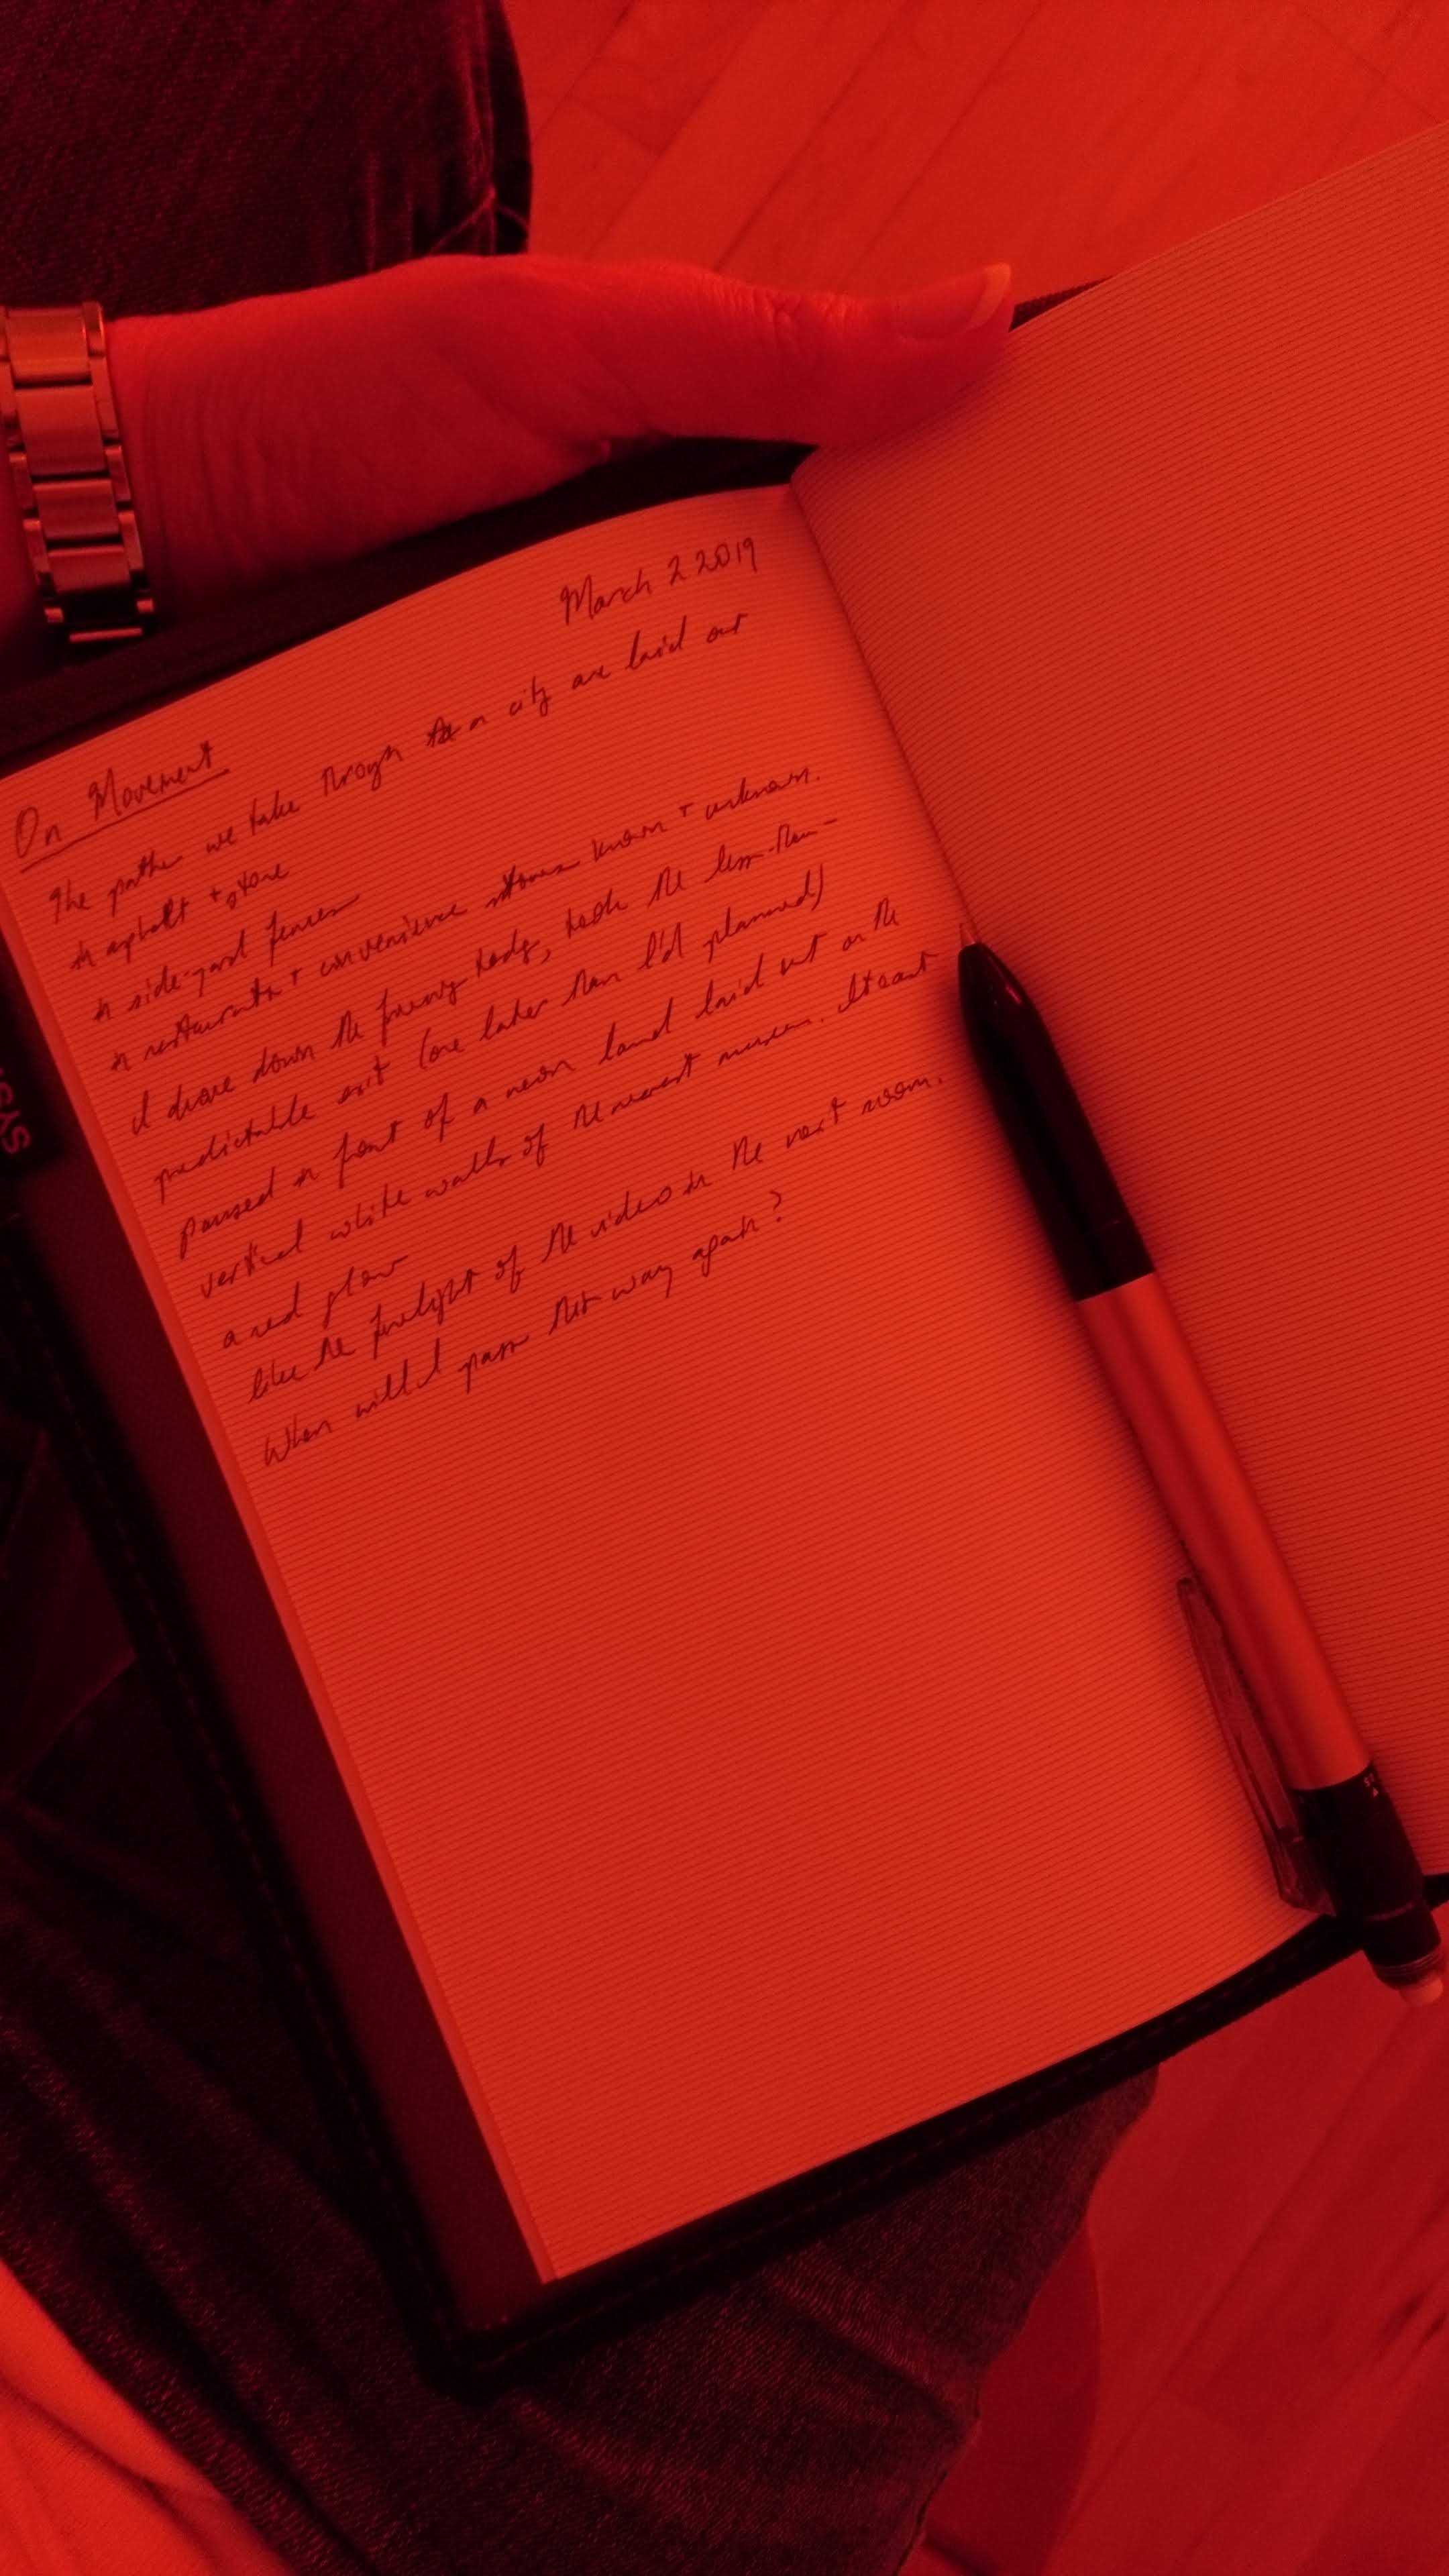 March 2 2019
On Movement
The paths we take through a city are laid out
in asphalt + stone
in side-yard fences
in restaurants + convenience stores known + unknown.
I drove down the freeway today, took the less-than-
predictable exit (one later than I'd planned)
paused in front of a neon land laid out on the
vertical white walls of the nearest museum. It cast
a red glow
like the firelight of the video in the next room.
When will I pass this way again?
SYS